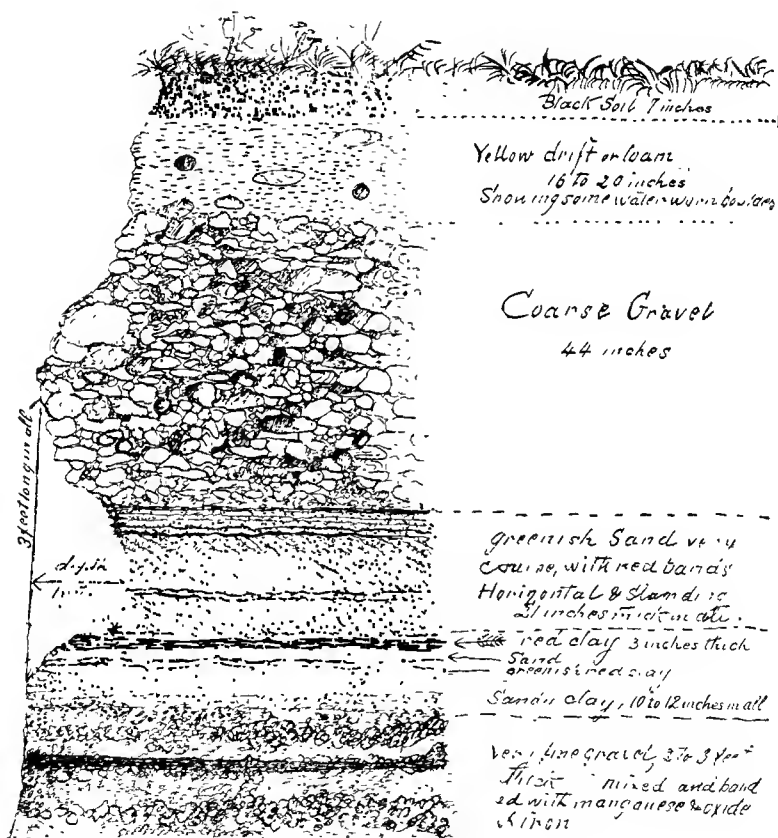 Black Soil 7 inches
Yellow drift or loam
16 to 20 inches
Showing some water worn boulders
Coarse Gravel
44 inches
3 feet long in all
greenish Sand very
course, with red bands
Horizontal & Slanding
21 inches thick in all.
depth
red clay 3 inches thick
Sand
greenish red clay
Sandy clay, 10 to 12 inches in all
Very fine gravel, 3 to 3 feet
thick mixed and band
ed with manganese & oxide
of iron